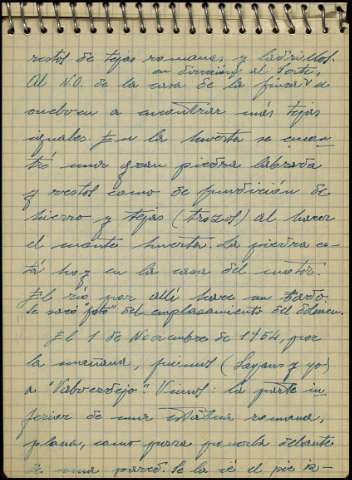 restos de tejas romanas, y ladrillos.
en dirección al Norte,
Al N.O. de la casa de la finca
vuelven a encontrar más tejas
iguales. En la huerta se encon
tró una gran piedra labrada
y restos como de fundición de
hierro y tejas (trozos) al hacer
el huerta. La piedra es-
tá hoy en la casa del motor.
El río, por allí hace un
se sacó "foto" del emplazamiento del
El 1 de Noviembre de 1954, por
la mañana, fuimos (Sayans y yo)
a "Valverdejo". Vimos: la parte in
ferior de una estátua romana,
plana, como para ponerla delante
de una pared. Se la vé el pie iz-